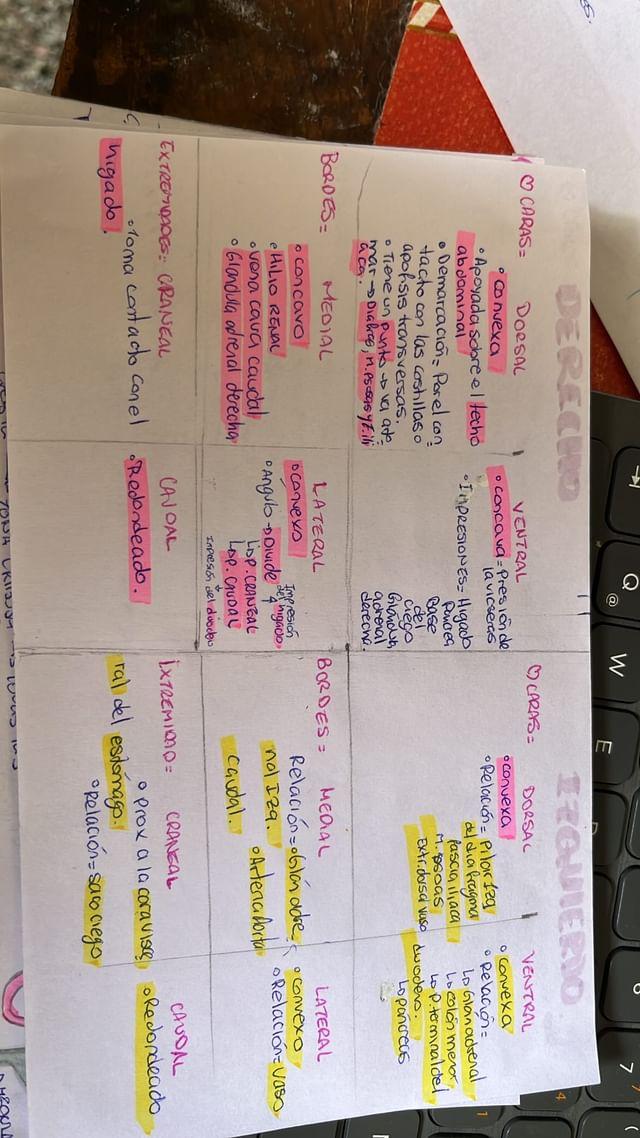 DERECHO
♡ CARAS=
DORSAL
• convexa
• Apoyada sobre el techo
abdominal
• Demarcación= Por el con
tacto con las costillas o
apófisis transversas.
• Tiene un punto → va a to
mar → Diafrag, m. psoas y F. ili
aca.
VENTRAL
• concava = Presión de
las viceras
• Impresiones = Higado
Pancrea
Base
del
ciego
Glándula
adrenal
derecha.
BORDES=
MEDIAL
• concavo
• Hilio Renal
• vena cava caudal
• Glándula adrenal derecha
LATERAL
• convexo
• Angulo → Divide
Impresión
del higado
Lisp. CRANEAL
Lisp. CAUDAL
impresión del duodeno
EXTREMIDADES= CRANEAL
• Toma contacto con el
higado.
CAUDAL
• Redondeado.
IZQUIERDO
♡ CARAS=
DORSAL
• convexa
• Relación= Pilar Izq
del diafragma
fascia iliaca
M. Psoas
Extr. dorsal vaso
VENTRAL
• convexa
• Relación=
↳ Glán adrenal
↳ P. terminal del
duodeno.
↳ pancreas
BORDES=
MEDIAL
Relación= • Glánd adre
nal Izq.
• Arteria Aorta
caudal.
LATERAL
• convexo
• Relación= vaso
EXTREMIDAD=
CRANEAL
• prox a la cara visce
ral del estómago.
• Relación= saco ciego
CAUDAL
• Redondeado
Q
@
W
E